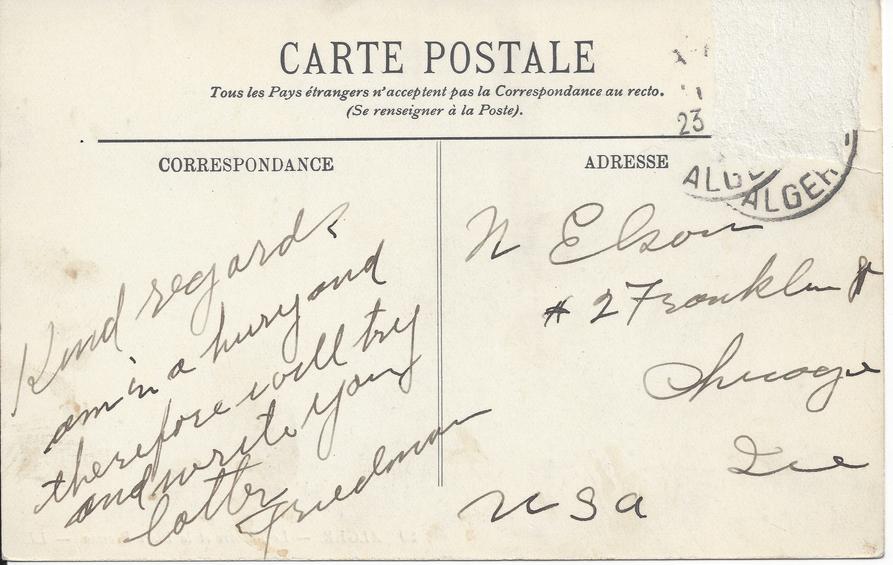 CARTE POSTALE
Tous les Pays étrangers n'acceptent pas la Correspondance au recto.
(Se renseigner à la Poste).
23
ALGER
CORRESPONDANCE
Kind regards
am in a hurry and
therefore will try
and write you
latter
Friedman
ADRESSE
N Elson
# 27 Franklin St
Chicago
Ill
USA